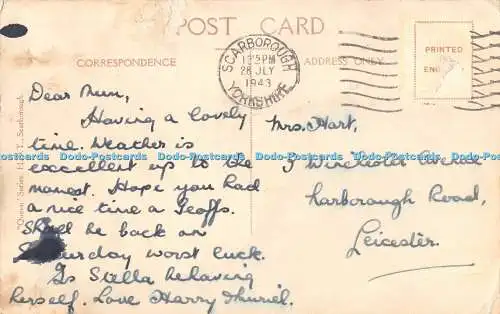 POST CARD
CORRESPONDENCE
ADDRESS ONLY
SCARBOROUGH
12 5PM
28 JLY
1943
YORKSHIRE
PRINTED
IN
ENGLAND
"Queen" Series
Scarborough.
Dear Mum,
Having a lovely
time. Weather is
excellent up to the
moment. Hope you had
a nice time a Geoffs.
Shall be back on
Saturday worst luck.
Is Stella behaving
herself. Love Harry & Muriel.
Mrs. Hart,
Winchester Avenue
Narborough Road,
Leicester.
Dodo-Postcards Dodo-Postcards Dodo-Postcards Dodo-Postcards Dodo-Postcards Dodo-Postcards Dodo-Postcards